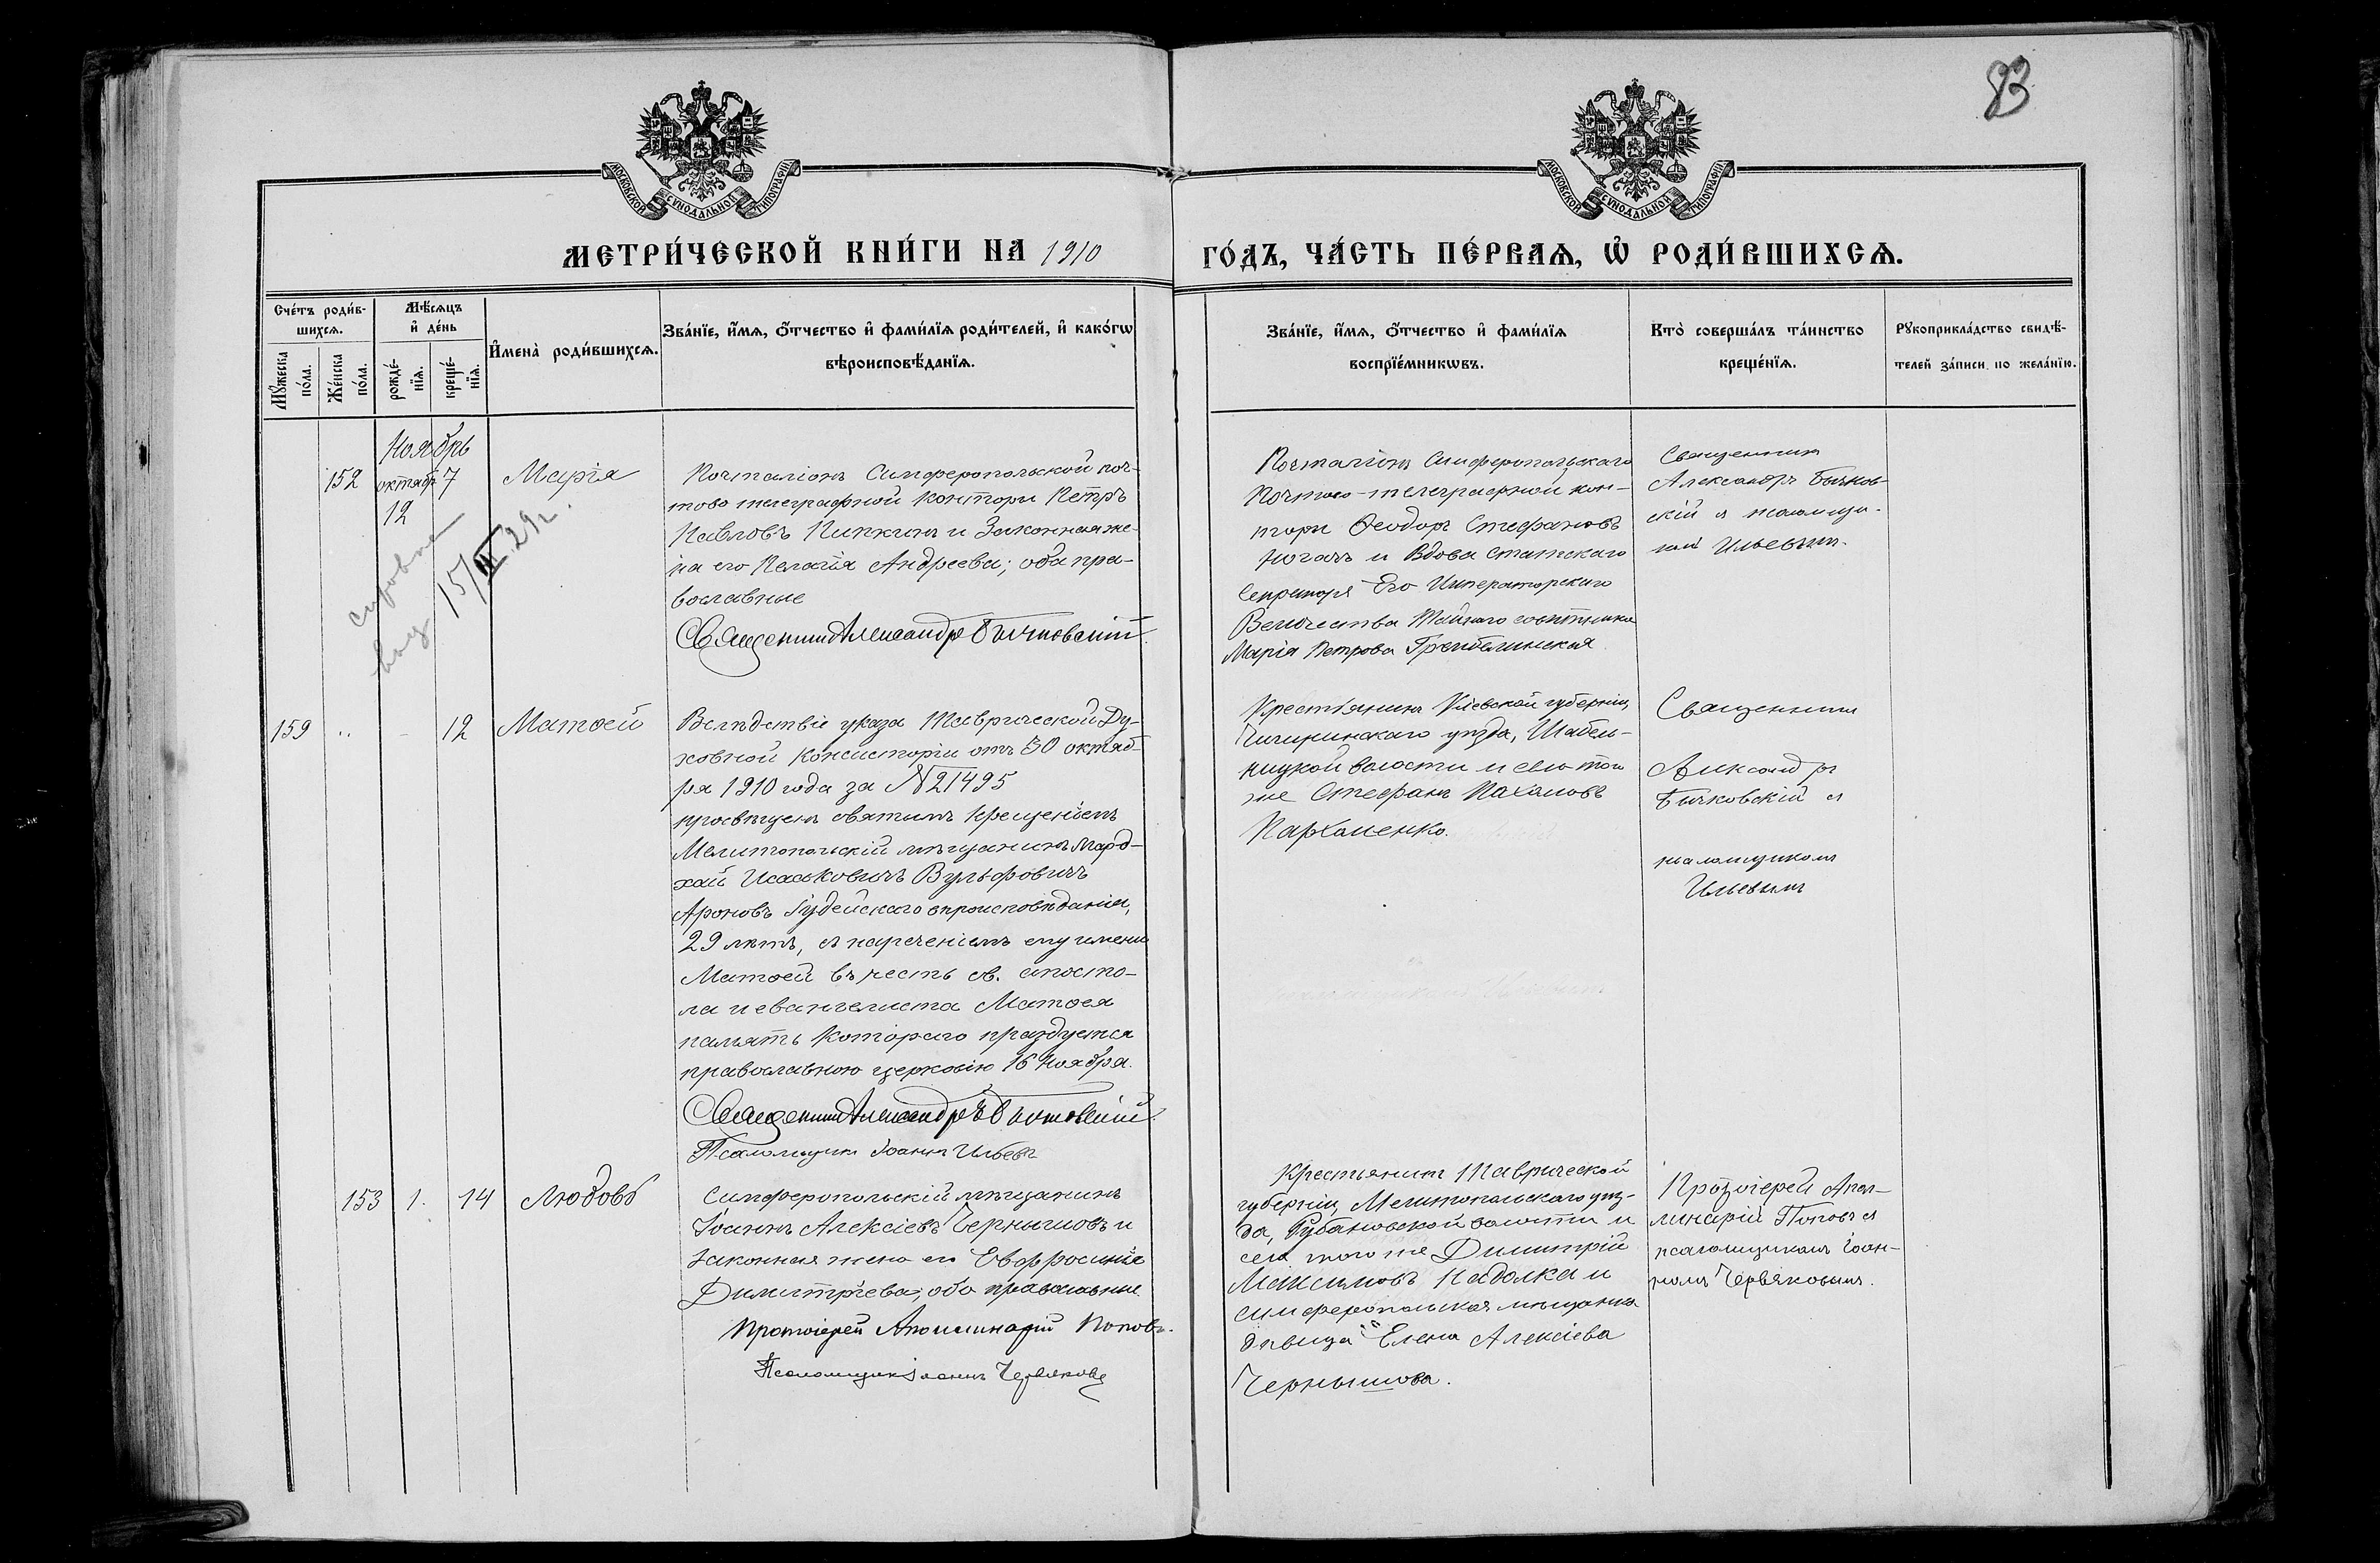 83
МОСКОВСКОЙ СУНОДАЛЬНОЙ ТИПОГРАФІИ
МОСКОВСКОЙ СУНОДАЛЬНОЙ ТИПОГРАФІИ
МЕТРИ́ЧЕСКОЙ КНИ́ГИ НА 1910
ГО́ДЪ, ЧА́СТЬ ПЕ́РВАѦ, Ѡ҆ РОДИ́ВШИХСѦ.
Сче́тъ роди́в-
шихсѧ.
Мꙋ́жеска
по́ла.
Же́нска
по́ла.
Мѣ́сѧцъ
и҆ де́нь
рожде́-
нїѧ.
креще́-
нїѧ.
И҆мена̀ роди́вшихсѧ.
Зва́нїе, и҆́мѧ, ѻ҆́тчество и҆ фами́лїѧ роди́телей, и҆ како́гѡ
вѣроисповѣ́данїѧ.
Зва́нїе, и҆́мѧ, ѻ҆́тчество и҆ фами́лїѧ
воспрїе́мникѡвъ.
Кто̀ соверша́лъ та́инство
креще́нїѧ.
Рꙋкоприкла́дство свидѣ́-
телей за́писи по жела́нїю.
Ноябрь
152
октяб. 7
12
Марія
Почталіонъ Симферопольской поч-
тово телеграфной конторы Петръ
Павловъ Пипкинъ и Законная же-
на его Пелагія Андреева; оба пра-
вославные
Священникъ Александръ Бычковскій
15/IV 29г.
Почталіонъ Симферопольскаго
Почтово-телеграфной кон-
торы Ѳеодоръ Стефановъ
и Вдова статскаго
Секретаря Его Императорскаго
Величества Тайнаго совѣтника
Марія Петрова
Священникъ
Александръ Бычков-
скій съ псаломщи-
комъ Ильевымъ.
159 " - 12
Матѳей
Вслѣдствіе указа Таврической Ду-
ховной Консисторіи отъ 30 октяб-
ря 1910 года за № 21495
просвѣщенъ святымъ крещеніемъ
Мелитопольскій мѣщанинъ Мард-
хай Исааковичъ Вульфовичъ
Ароновъ Іудейскаго вѣроисповѣданія,
29 лѣтъ, съ нареченіемъ ему имени
Матѳей въ честь св. апосто-
ла и евангелиста Матѳея
память Котораго празднуется
православною церковію 16 Ноября.
Священникъ Александръ Бычковскій
Псаломщикъ Іоаннъ Ильевъ
Крестьянинъ Кіевской губерніи,
Чигиринскаго уѣзда, Шабель-
ницкой волости и села того
же Стефанъ Пахомовъ
Пархоменко.
Священникъ
Александръ
Бычковскій съ
псаломщикомъ
Ильевымъ
153 1. 14
Любовь
Симферопольскій мѣщанинъ
Іоаннъ Алексіевъ Чернышовъ и
законная жена его Евфросинія
Димитріева, оба православные.
Протоіерей Аполлинарій Поповъ.
Псаломщикъ Іоаннъ Червяковъ
Крестьянинъ Таврической
губерніи, Мелитопольскаго уѣз-
да, Рубановской волости и
села того же Димитрій
Максимовъ Кадолка и
симферопольская мѣщанка
дѣвица Елена Алексіева
Чернышова.
Протоіерей Апол-
линарій Поповъ съ
псаломщикомъ Іоан-
номъ Червяковымъ.